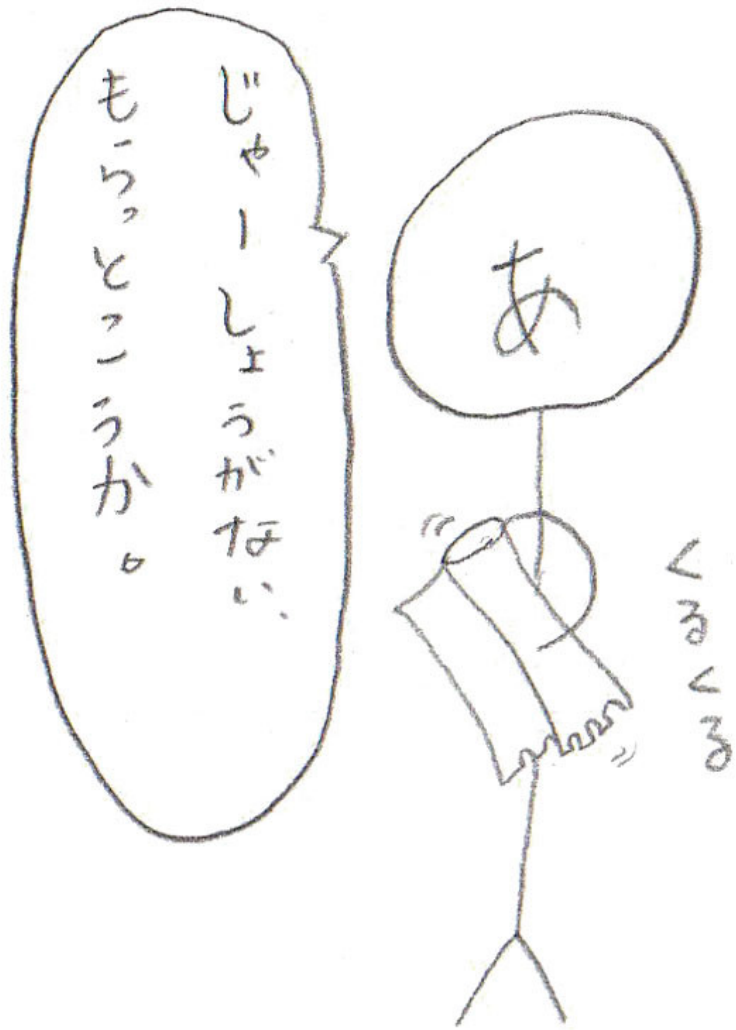 あ
くるくる
じゃーしょうがない、
もらっとこうか。